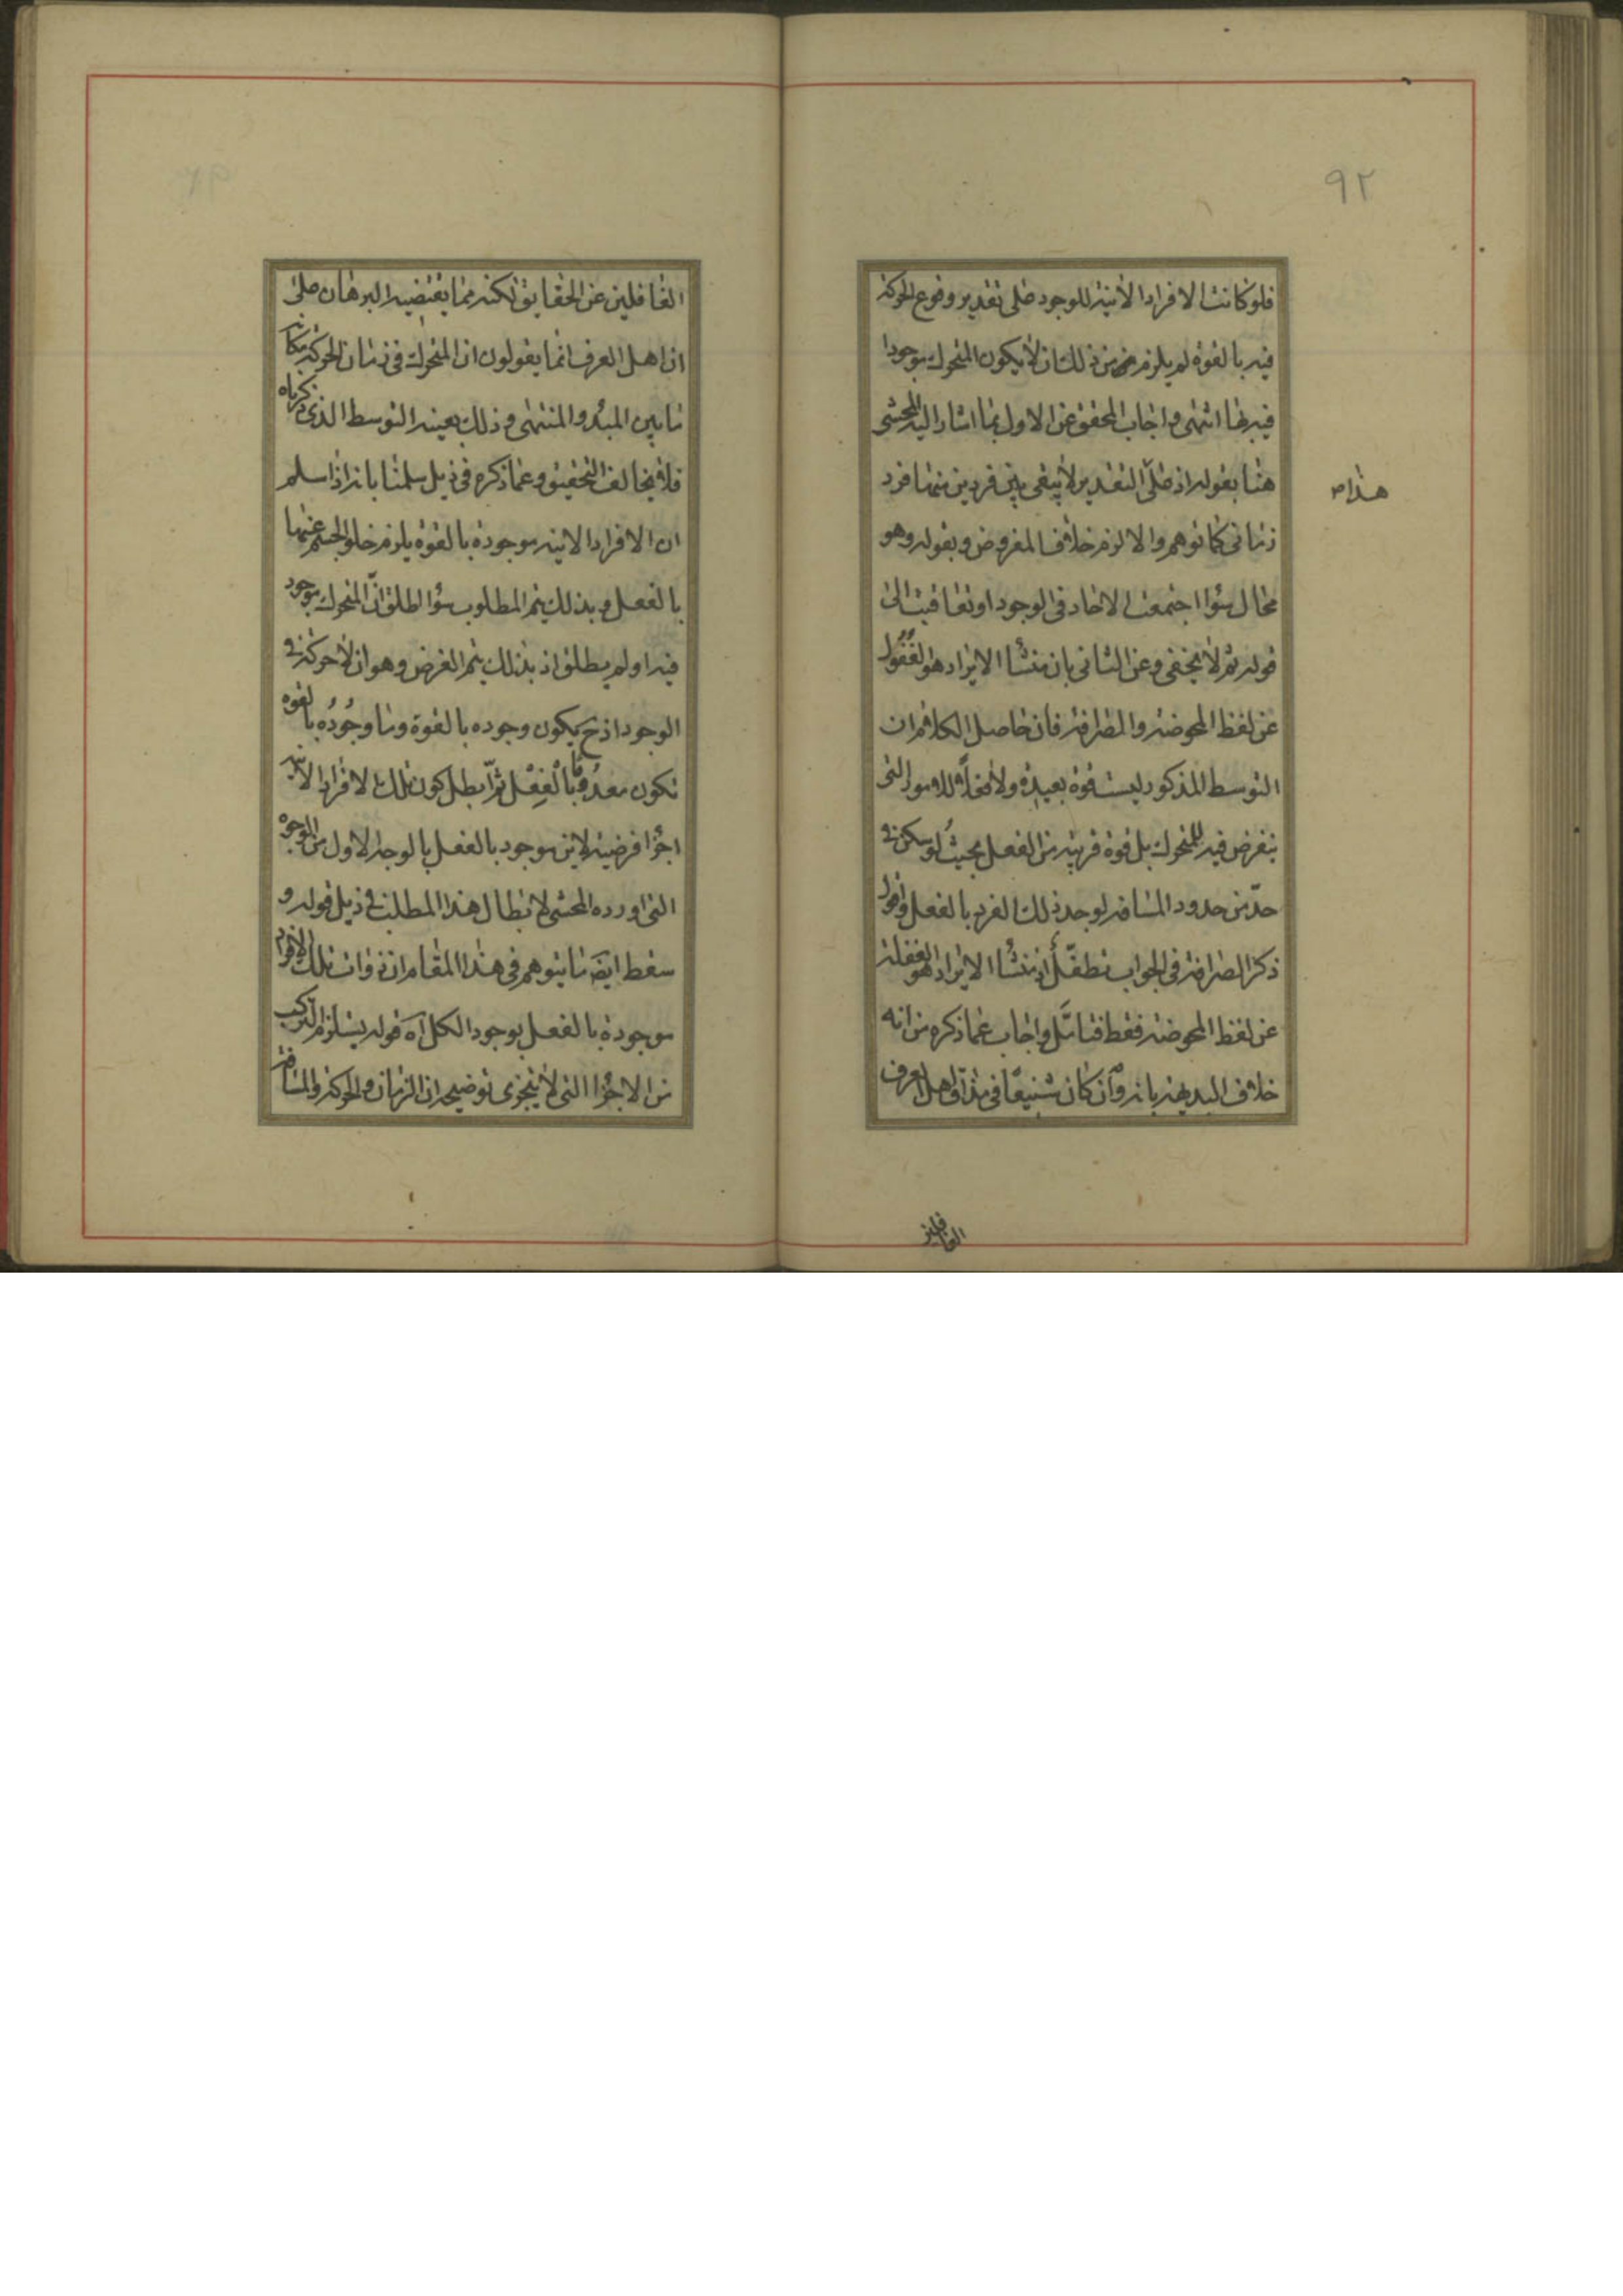 ٩٢
فلو كانت الافراد الآنية للوجود على تقدير وقوع الحركة
فيه بالقوة لم يلزم من ذلك ان لا يكون المتحرك موجودا
فيها انتهى واجاب المحقق عن الاول بما اشار اليه المحشى
هنا بقوله اذ على التقدير لا يبقى بين فردين منها فرد
هذا ص
زمانى كما توهم والا لزم خلاف المفروض وبقوله وهو
محال سواء اجتمعت الاحاد فى الوجود او تعاقبت الى
قوله ثم لا يخفى وعن الثانى بان منشأ الايراد هو الغفول
عن لفظ المحوضة والصرافة فان حاصل الكلام ان
التوسط المذكور ليست قوة بعيدة ولا محلا للامور التى
يتفرض فيه للمتحرك بل قوة قريبة من الفعل بحيث لو سكن فى
حد من حدود المسافة لوجد ذلك الفرد بالفعل واقول
ذكر الصرافة فى الجواب تطفل اذ منشأ الايراد هو الغفلة
عن لفظ المحوضة فقط فتامل واجاب عما ذكره من انه
خلاف البديهة بانه وان كان شنيعا فى مذاق اهل العرف
الغافلين
الغافلين عن الحقايق لكنه مما يقتضيه البرهان على
ان اهل العرف انما يقولون ان المتحرك فى زمان الحركة مكانه
ما بين المبدء والمنتهى وذلك بعينه التوسط الذى ذكرناه
فلا يخالف التحقيق وعما ذكره فى ذيل سلمنا بانه اذا سلم
ان الافراد الآنية موجودة بالقوة يلزم خلو الجسم عنها
بالفعل وبذلك يتم المطلوب سواء اطلق ان المتحرك موجود
فيه او لم يطلق اذ بذلك يتم الغرض وهو ان لا حركة فى
الوجود اذ ح يكون وجوده بالقوة وما وجوده بالقوه
تكون معدوما بالفعل ثم بطل كون تلك الافراد الآنية
اجزاء فرضية لاين موجود بالفعل بالوجه الاول من الوجوه
التى اورده المحشى لابطال هذا المطلب فى ذيل قوله و
سقط ايضا ما يتوهم فى هذا المقام ان ذوات تلك الافراد
موجودة بالفعل بوجود الكل آه قوله يستلزم التركب
من الاجزاء التى لا يتجزى توضيحه ان الزمان والحركة والمسافة